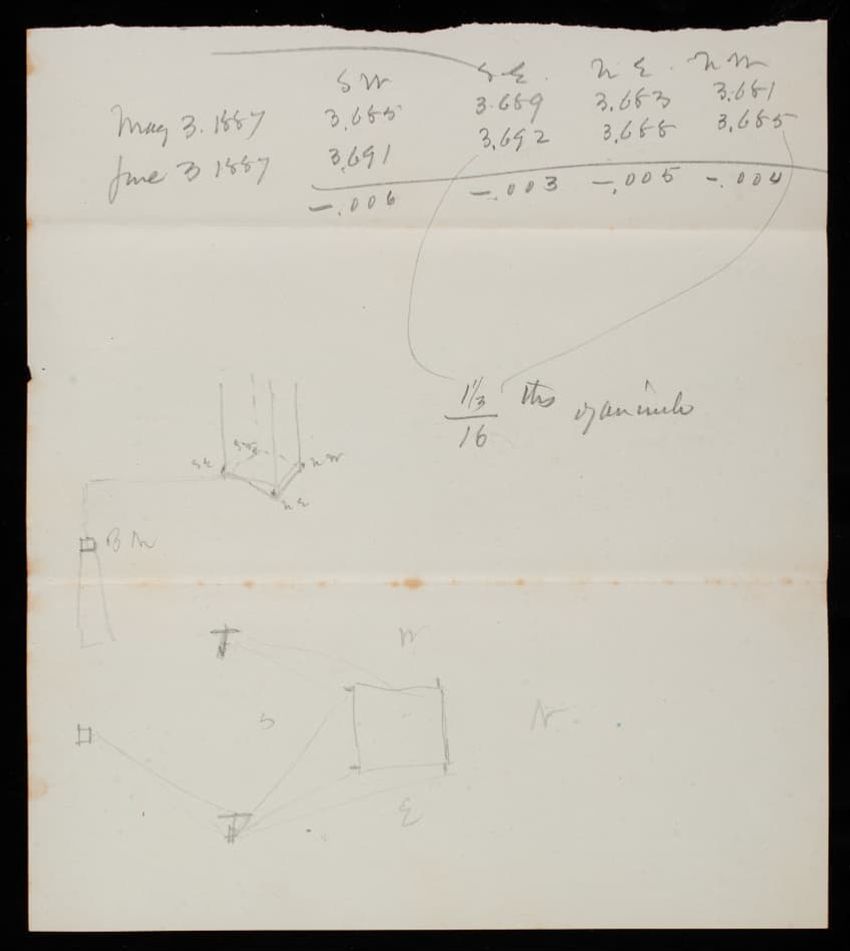 SW S.E. N E. N W
May 3. 1887 3.685 3.689 3.683 3.681
June 3 1887 3.691 3.692 3.688 3.685
-.006 -.003 -.005 -.004
1⅓ ths of an inch
16
SW
SE N W
N E
B M
W
S N.
E